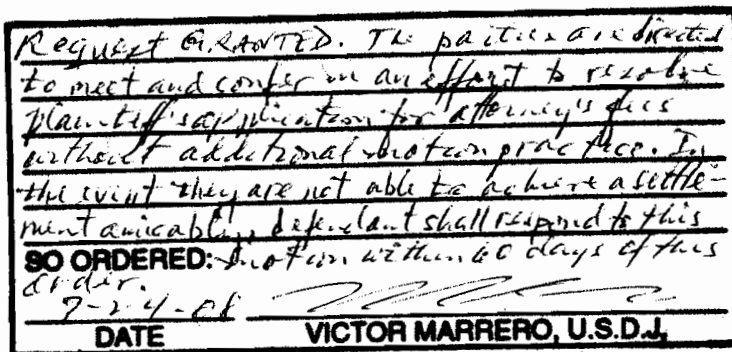 Request GRANTED. The parties are directed
to meet and confer in an effort to resolve
plaintiff's application for attorney's fees
without additional motion practice. In
the event they are not able to achieve a settle-
ment amicably, defendant shall respond to this
SO ORDERED: motion within 60 days of this
order.
7-24-08
DATE VICTOR MARRERO, U.S.D.J.